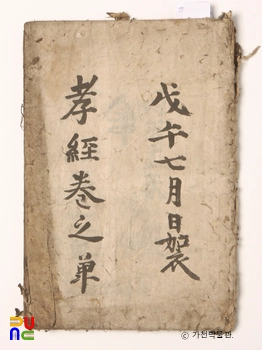 戊午七月日袈
孝經卷之單
© 가천박물관.